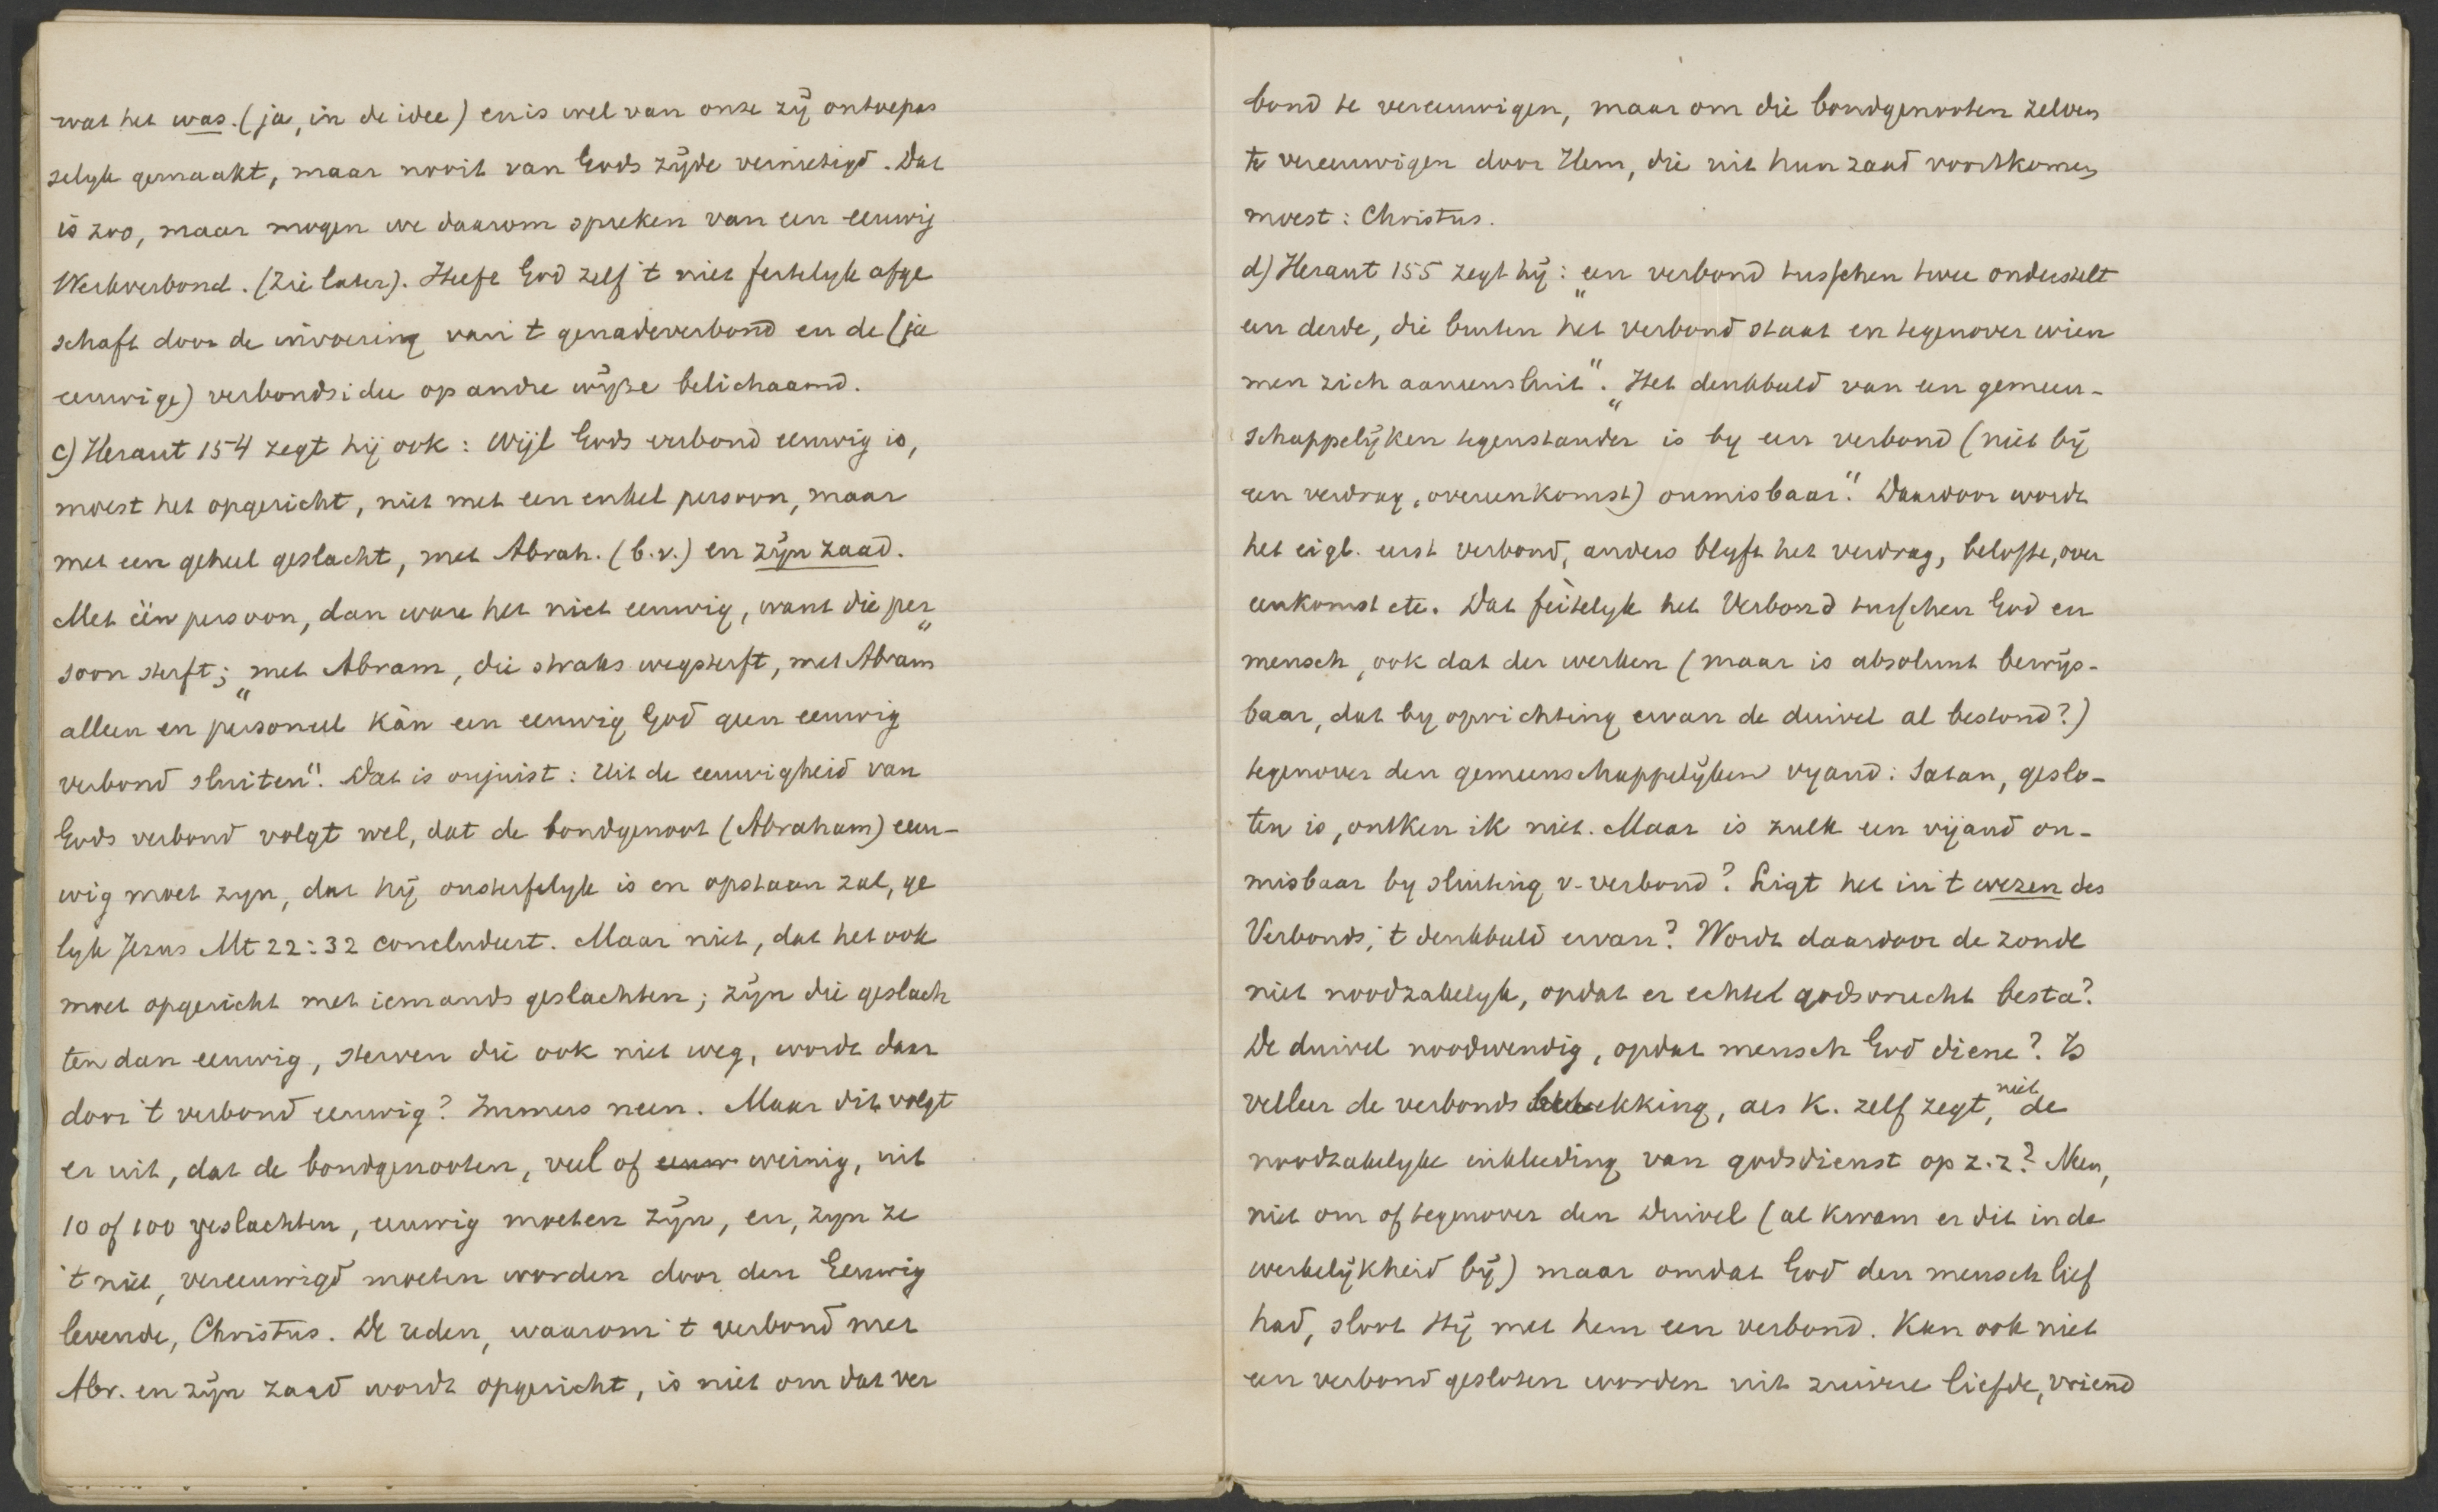 wat het was. (ja, in de idee) en is wel van onze zij ontoepas
selyk gemaakt, maar nooit van Gods zijde vernietigd. Dat
is zoo, maar mogen we daarom spreken van een eeuwig
Werkverbond. (Zie later). Heeft God zelf 't niet feitelyk afge
schaft door de invoering van 't genadeverbond en de (ja
eeuwige) verbondsidee op andre wijze belichaamd.
c) Heraut 154 zegt hij ook: Wijl Gods verbond eeuwig is,
moest het opgericht, niet met een enkel persoon, maar
met een geheel geslacht, met Abrah. (b.v.) en zijn zaad.
Met één persoon, dan ware het niet eeuwig, want die per„
soon sterft; „met Abram, die straks wegsterft, met Abram
alleen en personeel kàn een eeuwig God geen eeuwig
verbond sluiten". Dat is onjuist: Uit de eeuwigheid van
Gods verbond volgt wel, dat de bondgenoot (Abraham) eeu-
wig moet zyn, dat hij onsterfelyk is en opstaan zal, ge
lyk Jezus Mt 22:32 concludeert. Maar niet, dat het ook
moet opgericht met iemands geslachten; zijn die geslach
ten dan eeuwig, sterven die ook niet weg, wordt daar
door 't verbond eeuwig? Immers neen. Maar dit volgt
er uit, dat de bondgenooten, veel of eeuw weinig, uit
10 of 100 geslachten, eeuwig moeten zijn, en, zyn ze
't niet, vereeuwigd moeten worden door den Eeuwig
levende, Christus. De reden, waarom 't verbond met
Abr. en zijn zaad wordt opgericht, is niet om dat ver
bond te vereeuwigen, maar om die bondgenooten zelven
te vereeuwigen door Hem, die uit hun zaad voortkomen
moest: Christus.
d) Heraut 155 zegt hij: „een verbond tusschen twee onderstelt
een derde, die buiten het verbond staat en tegenover wien
men zich aaneensluit". „Het denkbeeld van een gemeen-
schappelijken tegenstander is by een verbond (niet bij
een verdrag, overeenkomst) onmisbaar". Daardoor wordt
het eigl. eerst verbond, anders blyft het verdrag, belofte, over
eenkomst etc. Dat feitelyk het Verbond tusschen God en
mensch, ook dat der werken (maar is absoluut bewijs-
baar, dat by oprichting ervan de duivel al bestond?)
tegenover den gemeenschappelijken vyand: Satan, geslo-
ten is, ontken ik niet. Maar is zulk een vijand on-
misbaar by sluiting v. verbond? Ligt het in 't wezen des
Verbonds, 't denkbeeld ervan? Wordt daardoor de zonde
niet noodzakelyk, opdat er echte godsvrucht besta?
De duivel noodwendig, opdat mensch God diene? Is
veeleer de verbondsbetrekking, als K. zelf zegt, niet de
noodzakelyke inkleeding van godsdienst op z.z? Neen,
niet om of tegenover den Duivel (al kwam er dit in de
werkelijkheid bij) maar omdat God den mensch lief
had, sloot Hij met hem een verbond. Kan ook niet
een verbond gesloten worden uit zuivere liefde, vriend